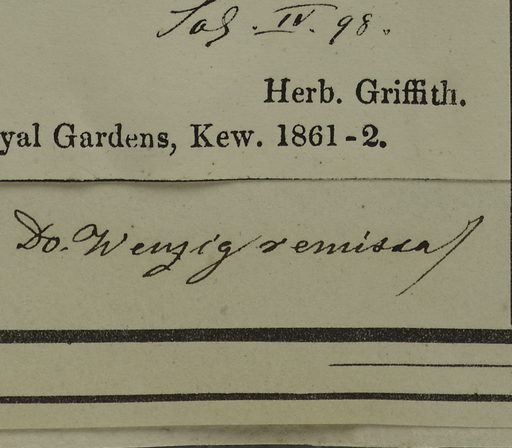 IV. 98.
Herb. Griffith.
yal Gardens, Kew. 1861-2.
Do. Wenzig remissa